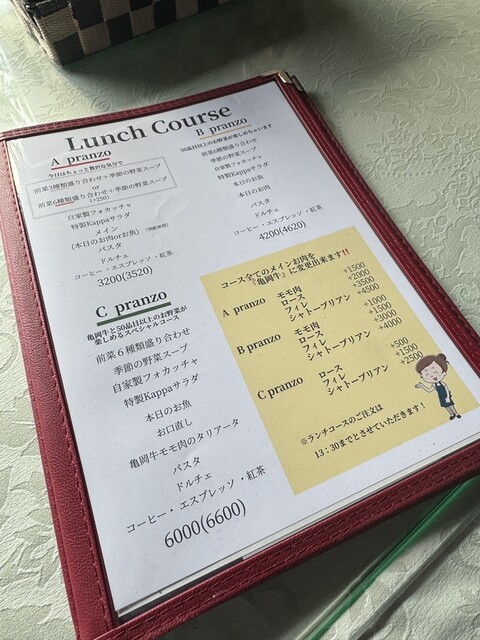 Lunch Course
A pranzo
今日はちょっと贅沢な気分で
前菜3種類盛り合わせ+季節の野菜スープ
or
前菜6種類盛り合わせ+季節の野菜スープ
(+250)
自家製フォカッチャ
特製Kappaサラダ
メイン
(本日のお肉orお魚)
パスタ
ドルチェ
コーヒー・エスプレッソ・紅茶
3200(3520)
B pranzo
50品目以上のお野菜が楽しめちゃいます
前菜6種類盛り合わせ
季節の野菜スープ
自家製フォカッチャ
特製Kappaサラダ
本日のお魚
本日のお肉
パスタ
ドルチェ
コーヒー・エスプレッソ・紅茶
4200(4620)
C pranzo
亀岡牛と50品目以上のお野菜が
楽しめるスペシャルコース
前菜６種類盛り合わせ
季節の野菜スープ
自家製フォカッチャ
特製Kappaサラダ
本日のお魚
お口直し
亀岡牛モモ肉のタリアータ
パスタ
ドルチェ
コーヒー・エスプレッソ・紅茶
6000(6600)
コース全てのメインお肉を
『亀岡牛』に変更出来ます‼
A pranzo モモ肉 +1500
ロース +2000
フィレ +3500
シャトーブリアン +4500
B pranzo モモ肉 +1000
ロース +1500
フィレ +3000
シャトーブリアン +4000
C pranzo ロース +500
フィレ +1500
シャトーブリアン +2500
※ランチコースのご注文は
13：30までとさせていただきます！